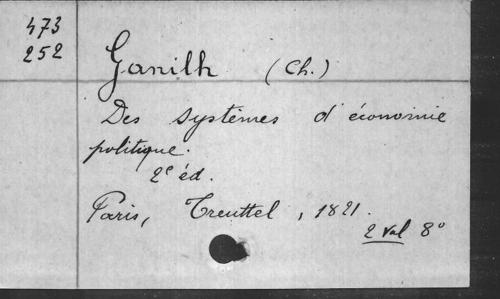 473
252
Ganilh (Ch.)
Des systèmes d'économie
politique.
2e éd.
Paris, Treuttel, 1821.
2 vol 8°